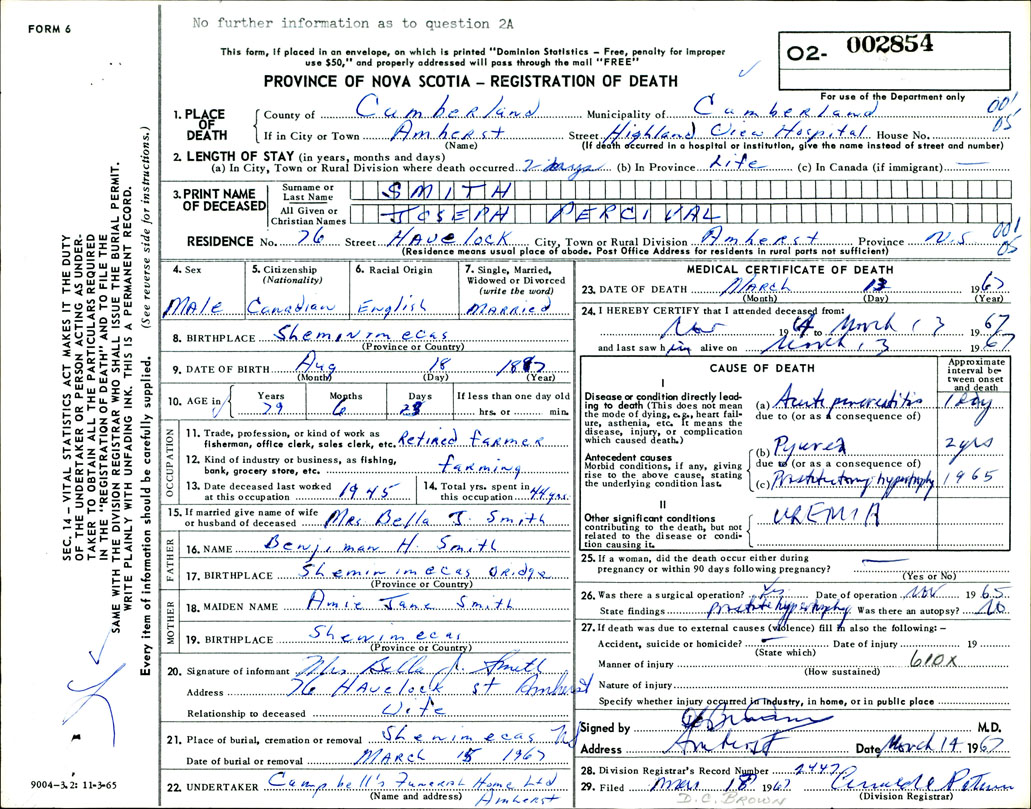 FORM 6
No further information as to question 2A
This form, if placed in an envelope, on which is printed "Dominion Statistics – Free, penalty for improper
use $50," and properly addressed will pass through the mail "FREE"
PROVINCE OF NOVA SCOTIA – REGISTRATION OF DEATH
O2- 002854
For use of the Department only
1. PLACE OF DEATH
County of Cumberland Municipality of Cumberland 001
If in City or Town Amherst Street Highland View Hospital House No. 05
(Name) (If death occurred in a hospital or institution, give the name instead of street and number)
2. LENGTH OF STAY (in years, months and days)
(a) In City, Town or Rural Division where death occurred 7 days (b) In Province Life (c) In Canada (if immigrant) —
3. PRINT NAME OF DECEASED
Surname or Last Name SMITH
All Given or Christian Names JOSEPH PERCIVAL
RESIDENCE No. 76 Street Havelock City, Town or Rural Division Amherst Province N.S 001 05
(Residence means usual place of abode. Post Office Address for residents in rural parts not sufficient)
4. Sex
Male
5. Citizenship (Nationality)
Canadian
6. Racial Origin
English
7. Single, Married, Widowed or Divorced (write the word)
Married
8. BIRTHPLACE Sheminimecas
(Province or Country)
9. DATE OF BIRTH Aug 18 1887
(Month) (Day) (Year)
10. AGE in Years 79 Months 6 Days 23 If less than one day old hrs. or min.
OCCUPATION
11. Trade, profession, or kind of work as fisherman, office clerk, sales clerk, etc. Retired farmer
12. Kind of industry or business, as fishing, bank, grocery store, etc. farming
13. Date deceased last worked at this occupation 1945
14. Total yrs. spent in this occupation 44 yrs.
15. If married give name of wife or husband of deceased Mrs. Bella J. Smith
FATHER
16. NAME Benjiman H. Smith
17. BIRTHPLACE Sheminimecas Bridge
(Province or Country)
MOTHER
18. MAIDEN NAME Amie Jane Smith
19. BIRTHPLACE Shenimecas
(Province or Country)
20. Signature of informant Mrs Bella J. Smith
Address 76 Havelock St Amherst
Relationship to deceased Wife
21. Place of burial, cremation or removal Shenimecas NS
Date of burial or removal MARCH 15 1967
22. UNDERTAKER Campbell's Funeral Home Ltd
(Name and address) Amherst
MEDICAL CERTIFICATE OF DEATH
23. DATE OF DEATH March 13 1967
(Month) (Day) (Year)
24. I HEREBY CERTIFY that I attended deceased from:
Nov 1964 to March 13 1967
and last saw him alive on March 13 1967
CAUSE OF DEATH
Approximate interval between onset and death
I
Disease or condition directly leading to death (This does not mean the mode of dying, e.g., heart failure, asthenia, etc. It means the disease, injury, or complication which caused death.)
(a) Acute pancreatitis 1 Day
due to (or as a consequence of)
Antecedent causes
Morbid conditions, if any, giving rise to the above cause, stating the underlying condition last.
(b) Pyuria 2 yrs
due to (or as a consequence of)
(c) hypertrophy 1965
II
Other significant conditions contributing to the death, but not related to the disease or condition causing it.
UREMIA
25. If a woman, did the death occur either during
pregnancy or within 90 days following pregnancy? —
(Yes or No)
26. Was there a surgical operation? Yes Date of operation Nov 1965
State findings prostate hypertrophy Was there an autopsy? No
27. If death was due to external causes (violence) fill in also the following: –
Accident, suicide or homicide? — Date of injury 19
(State which)
Manner of injury 610X
(How sustained)
Nature of injury
Specify whether injury occurred in industry, in home, or in public place
Signed by M.D.
Address Amherst Date March 14 1967
28. Division Registrar's Record Number 2447
29. Filed Mar 18 1967
(Division Registrar)
D.C. BROWN
SEC. 14 – VITAL STATISTICS ACT MAKES IT THE DUTY
OF THE UNDERTAKER OR PERSON ACTING AS UNDER-
TAKER TO OBTAIN ALL THE PARTICULARS REQUIRED
IN THE "REGISTRATION OF DEATH" AND TO FILE THE
SAME WITH THE DIVISION REGISTRAR WHO SHALL ISSUE THE BURIAL PERMIT.
WRITE PLAINLY WITH UNFADING INK. THIS IS A PERMANENT RECORD.
Every item of information should be carefully supplied. (See reverse side for instructions.)
9004-3.2: 11-3-65